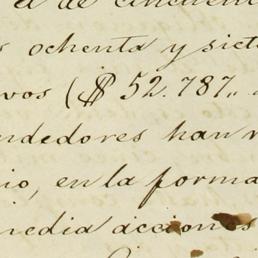 a de cincuent
ochenta y siet
vos ($ 52.787,,
ndedores han
io, en la forma
media acciones